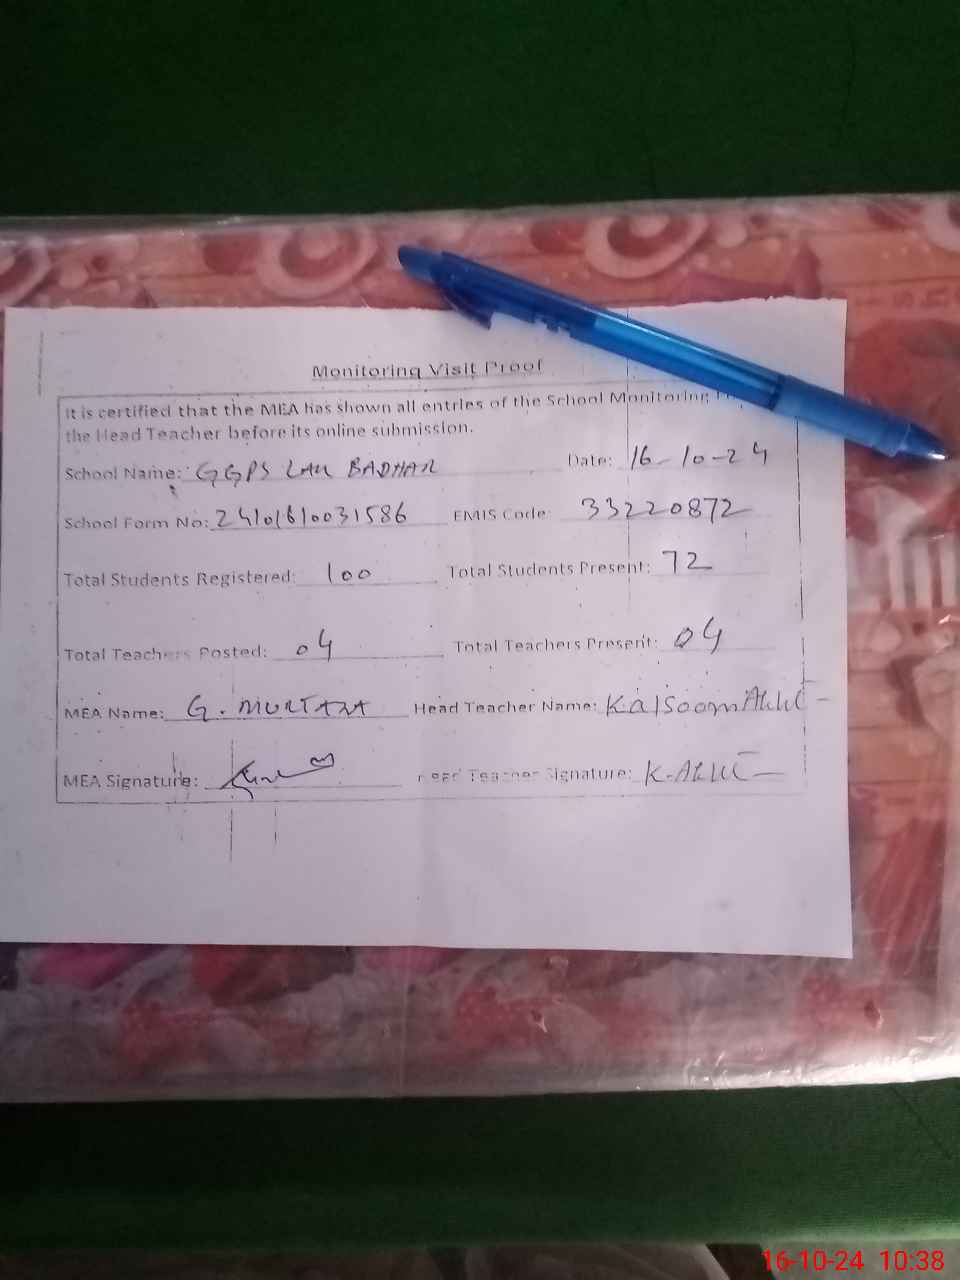 Monitoring Visit Proof
It is certified that the MEA has shown all entries of the School Monitoring
the Head Teacher before its online submission.
School Name: GGPS LAK BADHAR Date: 16-10-24
School Form No: 24101610031586 EMIS Code: 33220872
Total Students Registered: 100 Total Students Present: 72
Total Teachers Posted: 04 Total Teachers Present: 04
MEA Name: G. MURTAZA Head Teacher Name: Kalsoom
MEA Signature: Head Teacher Signature: K.
16-10-24 10:38